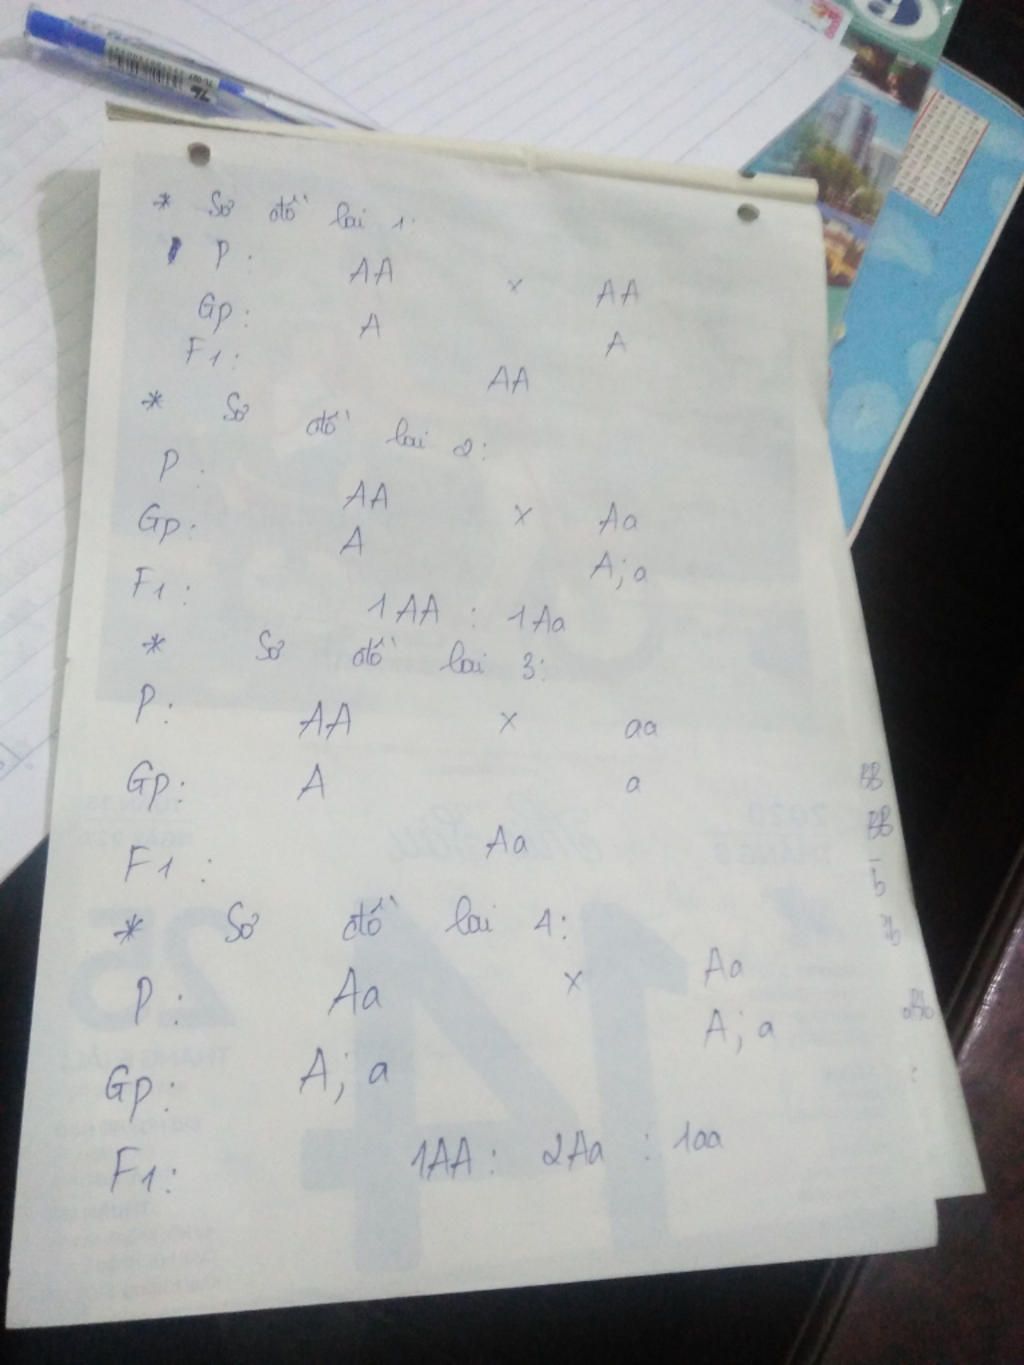 * Sơ đồ lai 1:
P: AA x AA
Gp: A A
F1: AA
* Sơ đồ lai 2:
P: AA x Aa
Gp: A A; a
F1: 1AA : 1Aa
* Sơ đồ lai 3:
P: AA x aa
Gp: A a
F1: Aa
* Sơ đồ lai 4:
P: Aa x Aa
Gp: A; a A; a
F1: 1AA : 2Aa : 1aa